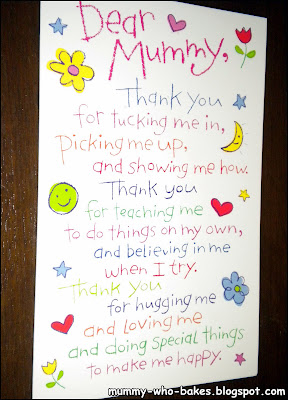 Dear
Mummy,
Thank you
for tucking me in,
picking me up,
and showing me how.
Thank you
for teaching me
to do things on my own,
and believing in me
when I try.
Thank you
for hugging me
and loving me
and doing special things
to make me happy.
mummy-who-bakes.blogspot.com